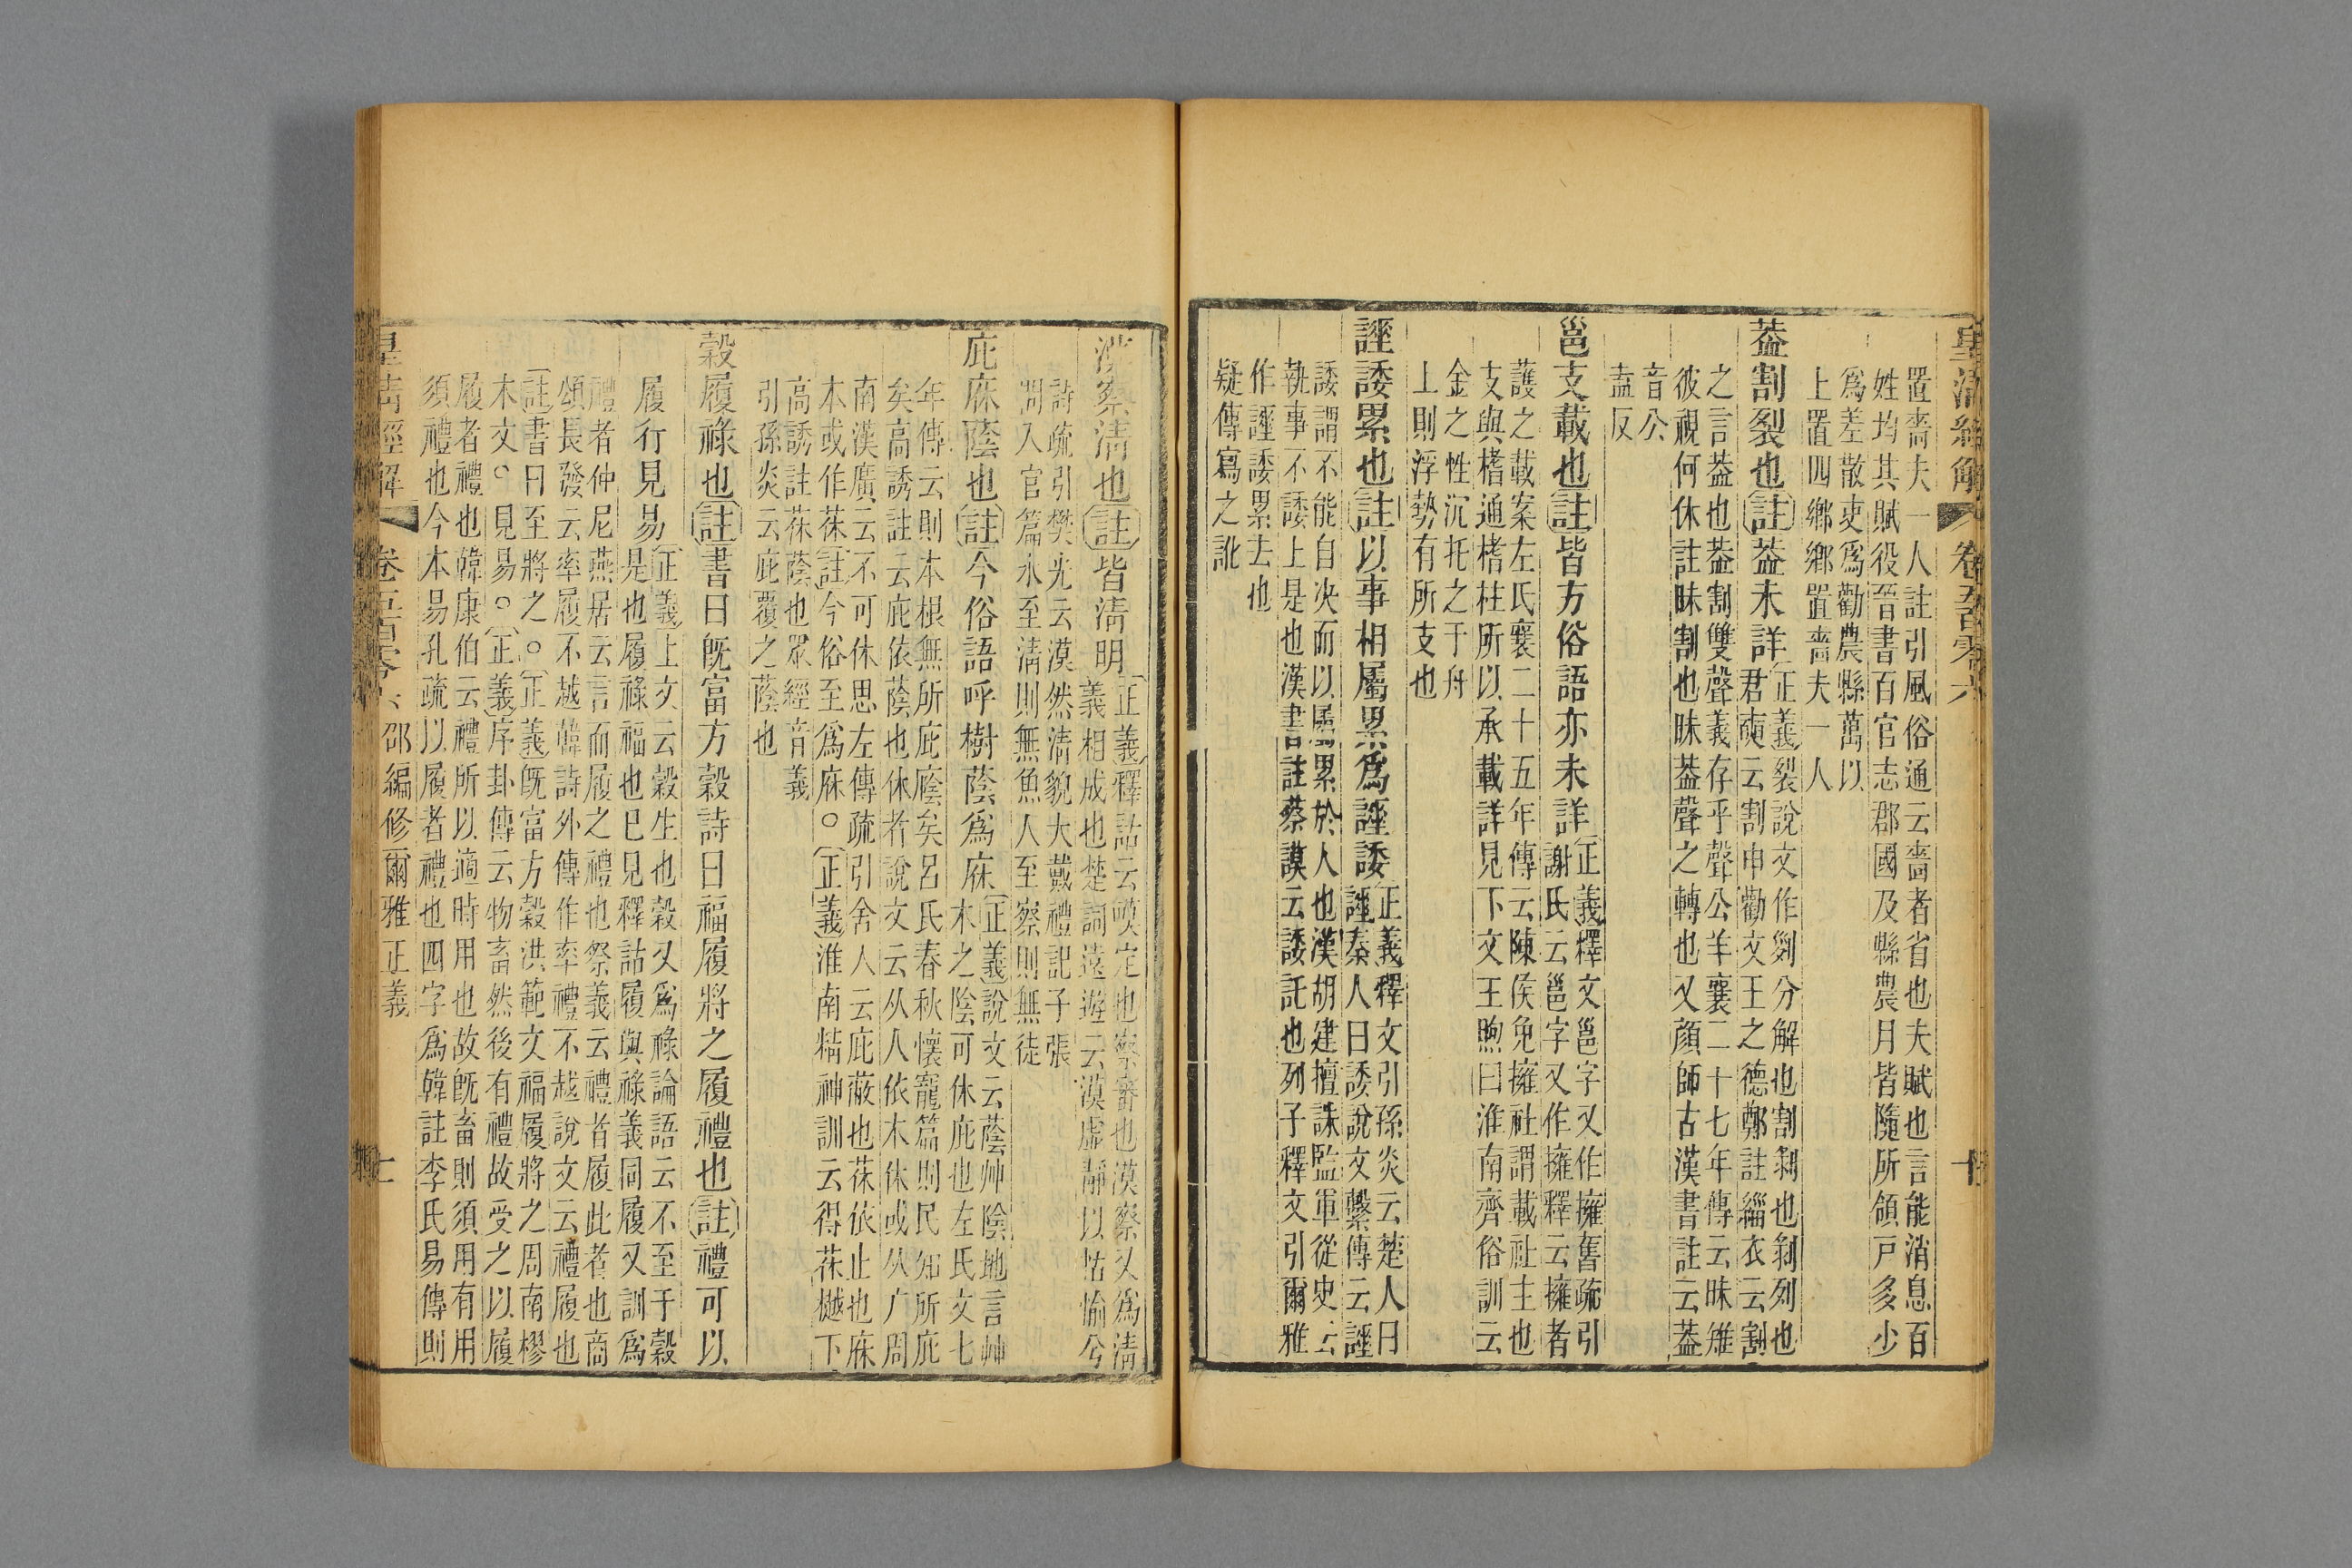 皇清經解 卷五百零六 十
置嗇夫一人註引風俗通云嗇者省也夫賦也言能消息百
姓均其賦役晉書百官志郡國及縣農月皆隨所領戸多少
爲差散吏爲勸農縣萬以
上置四鄉鄉置嗇夫一人
葢割裂也註葢未詳
正義裂說文作𠛱分解也割剥也剥列也
君奭云割申勸文王之德鄭註緇衣云割
之言葢也葢割雙聲義存乎聲公羊襄二十七年傳云昧雉
彼視何休註昧割也昧葢聲之轉也又顔師古漢書註云葢
音公
盍反
邕支載也註皆方俗語亦未詳
正義釋文邕字又作擁舊疏引
謝氏云邕字又作擁釋云擁者
護之載案左氏襄二十五年傳云陳侯免擁社謂載社主也
支與榰通榰柱所以承載詳見下文王煦曰淮南齊俗訓云
金之性沉托之于舟
上則浮勢有所支也
諈諉累也註以事相屬累爲諈諉
正義釋文引孫炎云楚人曰
諈秦人曰諉說文繫傳云諈
諉謂不能自決而以屬累於人也漢胡建擅誅監軍從史云
執事不諉上是也漢書註蔡謨云諉託也列子釋文引爾雅
作諈諉累去也
疑傳寫之訛
漠察清也註皆清明
正義釋詁云嗼定也察審也漠察又爲清
義相成也楚詞遠遊云漠虛靜以恬愉兮
詩疏引樊光云漠然清貌大戴禮記子張
問入官篇水至清則無魚人至察則無徒
庇庥蔭也註今俗語呼樹蔭爲庥
正義說文云蔭艸陰地言艸
木之陰可休庇也左氏文七
年傳云則本根無所庇廕矣呂氏春秋懷寵篇則民知所庇
矣高誘註云庇依蔭也休者說文云从人依木休或从广周
南漢廣云不可休思左傳疏引舍人云庇蔽也茠依止也庥
本或作茠註今俗至爲庥○正義淮南精神訓云得茠樾下
高誘註茠蔭也眾經音義
引孫炎云庇覆之蔭也
穀履祿也註書曰旣富方穀詩曰福履將之履禮也註禮可以
履行見易
正義上文云穀生也穀又爲祿論語云不至于穀
是也履祿福也已見釋詁履與祿義同履又訓爲
禮者仲尼燕居云言而履之禮也祭義云禮者履此者也商
頌長發云率履不越韓詩外傳作率禮不越說文云禮履也
註書曰至將之○正義旣富方穀洪範文福履將之周南樛
木文○見易○正義序卦傳云物畜然後有禮故受之以履
履者禮也韓康伯云禮所以適時用也故旣畜則須用有用
須禮也今本易孔疏以履者禮也四字爲韓註李氏易傳則
皇清經解 卷五百零六 邵編修爾雅正義